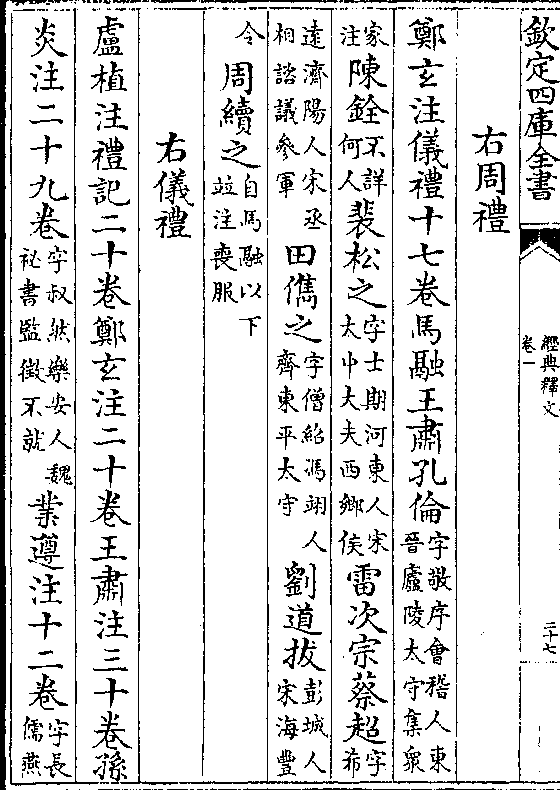 欽定四庫全書
經典釋文
卷一
二十七
右周禮
鄭玄注儀禮十七卷馬融王肅孔倫字敬序會稽人東晉廬陵太守集衆
家注陳銓不詳何人裴松之字士期河東人宋太中大夫西鄉侯雷次宗蔡超字希
遠濟陽人宋丞相諮議參軍田儁之字僧紹馮翊人齊東平太守劉道拔彭城人宋海豐
令周續之自馬融以下並注喪服
右儀禮
盧植注禮記二十卷鄭玄注二十卷王肅注三十卷孫
炎注二十九卷字叔然樂安人魏祕書監徵不就業遵注十二卷字長儒燕